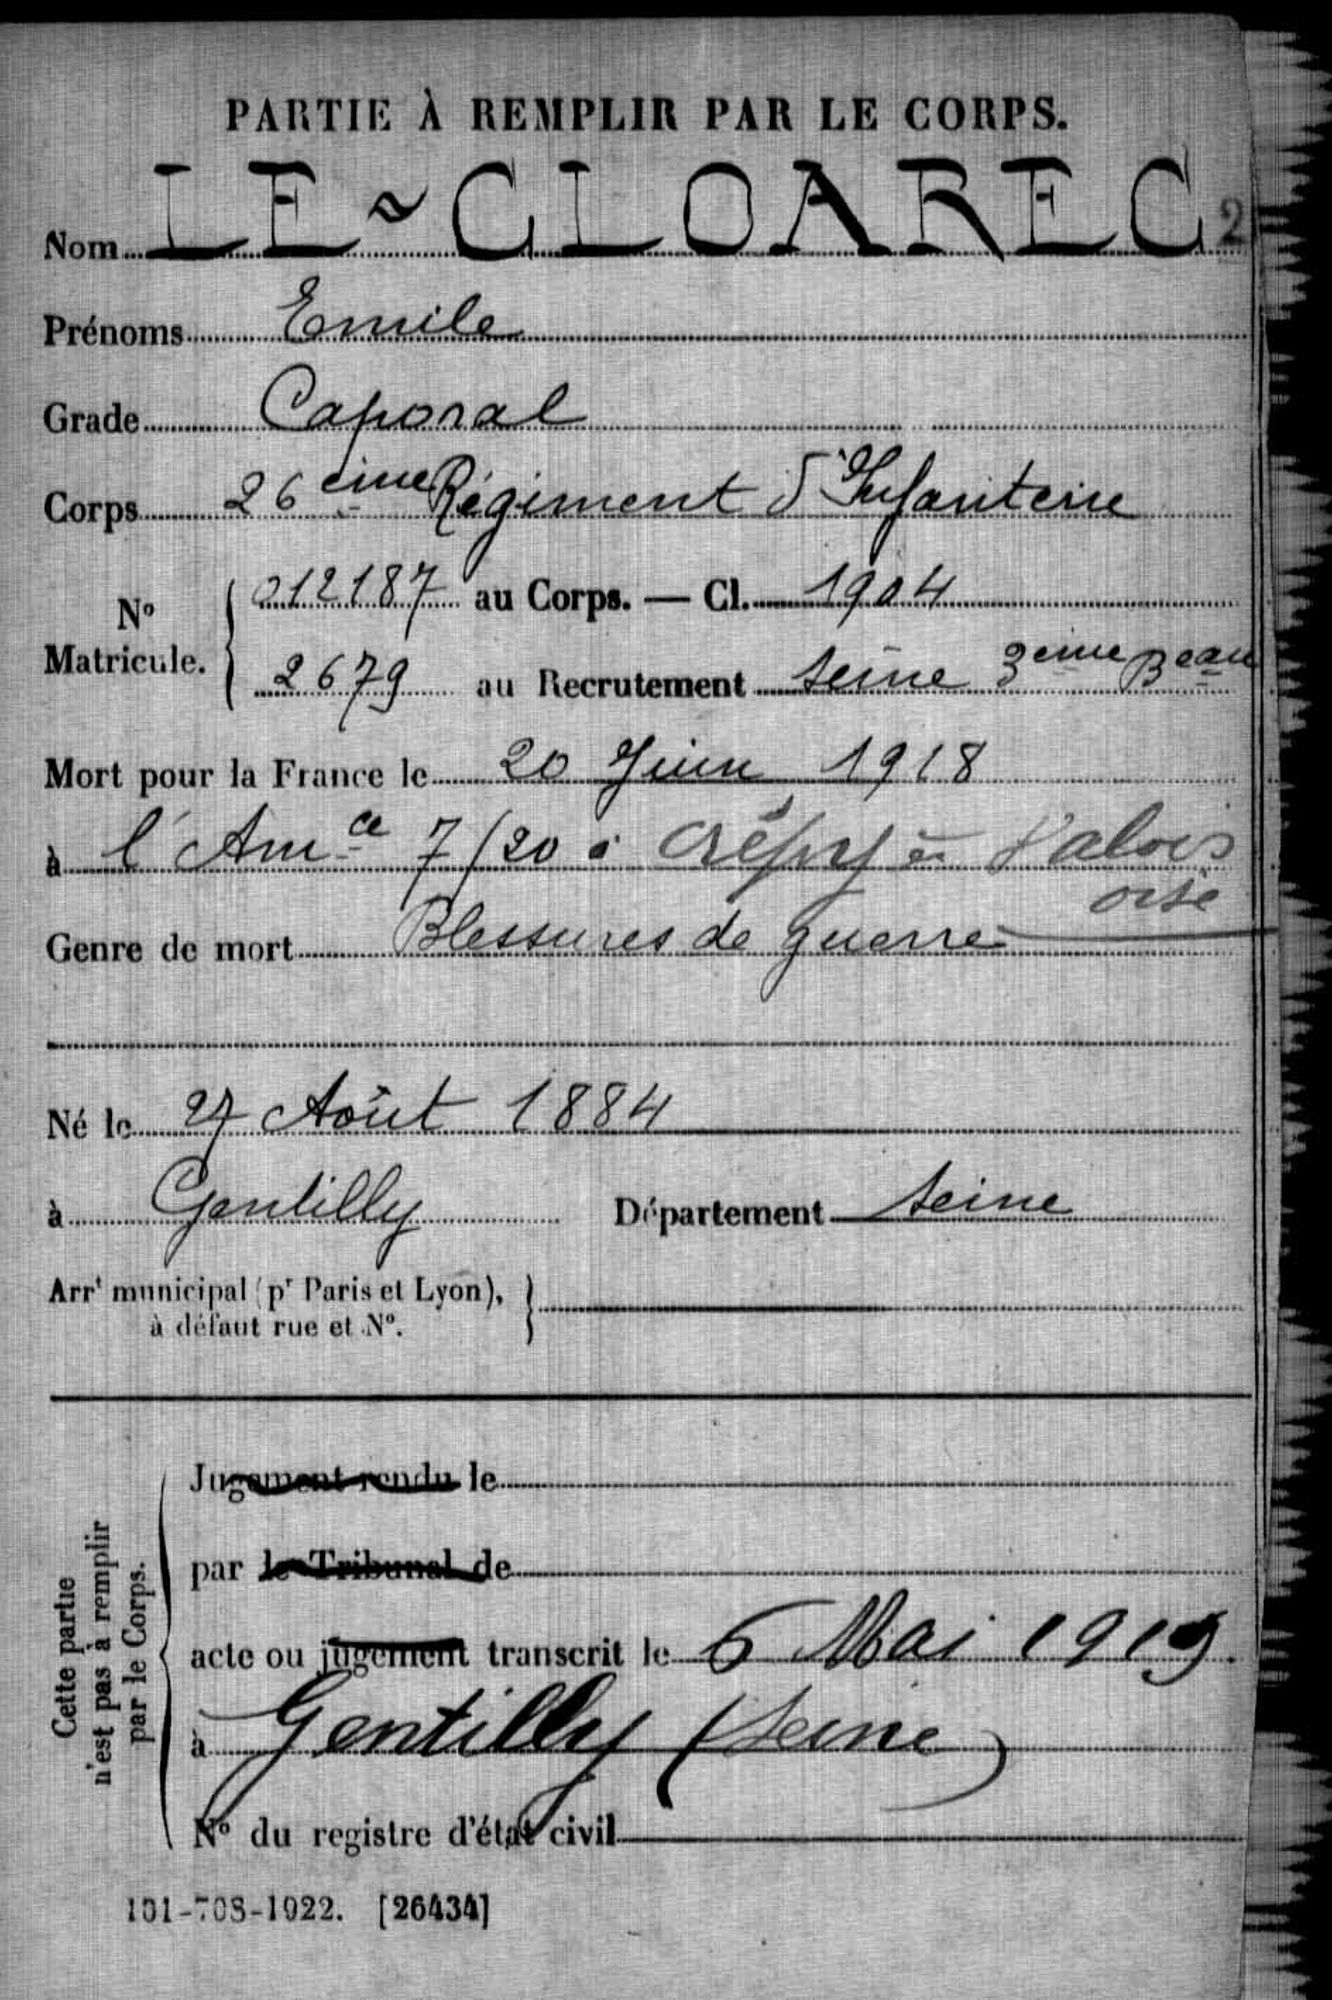 PARTIE À REMPLIR PAR LE CORPS.
Nom LE~CLOAREC 2
Prénoms Emile
Grade Caporal
Corps 26 ème Régiment d'Infanterie
N° Matricule. 012187 au Corps. — Cl. 1904
2679 au Recrutement Seine 3ème Beau
Mort pour la France le 20 Juin 1918
à l'Amce 7/20 à Crépy en Valois
oise
Genre de mort Blessures de guerre
Né le 27 Août 1884
à Gentilly Département Seine
Arrt municipal (pr Paris et Lyon),
à défaut rue et N°.
Jugement rendu le
par le Tribunal de
acte ou jugement transcrit le 6 Mai 1919.
à Gentilly (Seine)
N° du registre d'état civil
Cette partie
n'est pas à remplir
par le Corps.
101-708-1922. [26434]